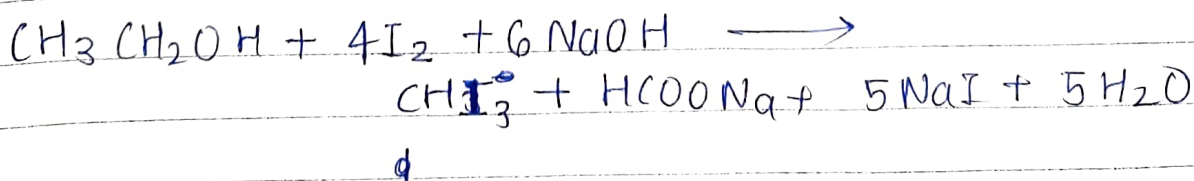 CH3 CH2OH + 4I2 + 6 NaOH ⟶
CHI3 + HCOONa + 5 NaI + 5 H2O
d